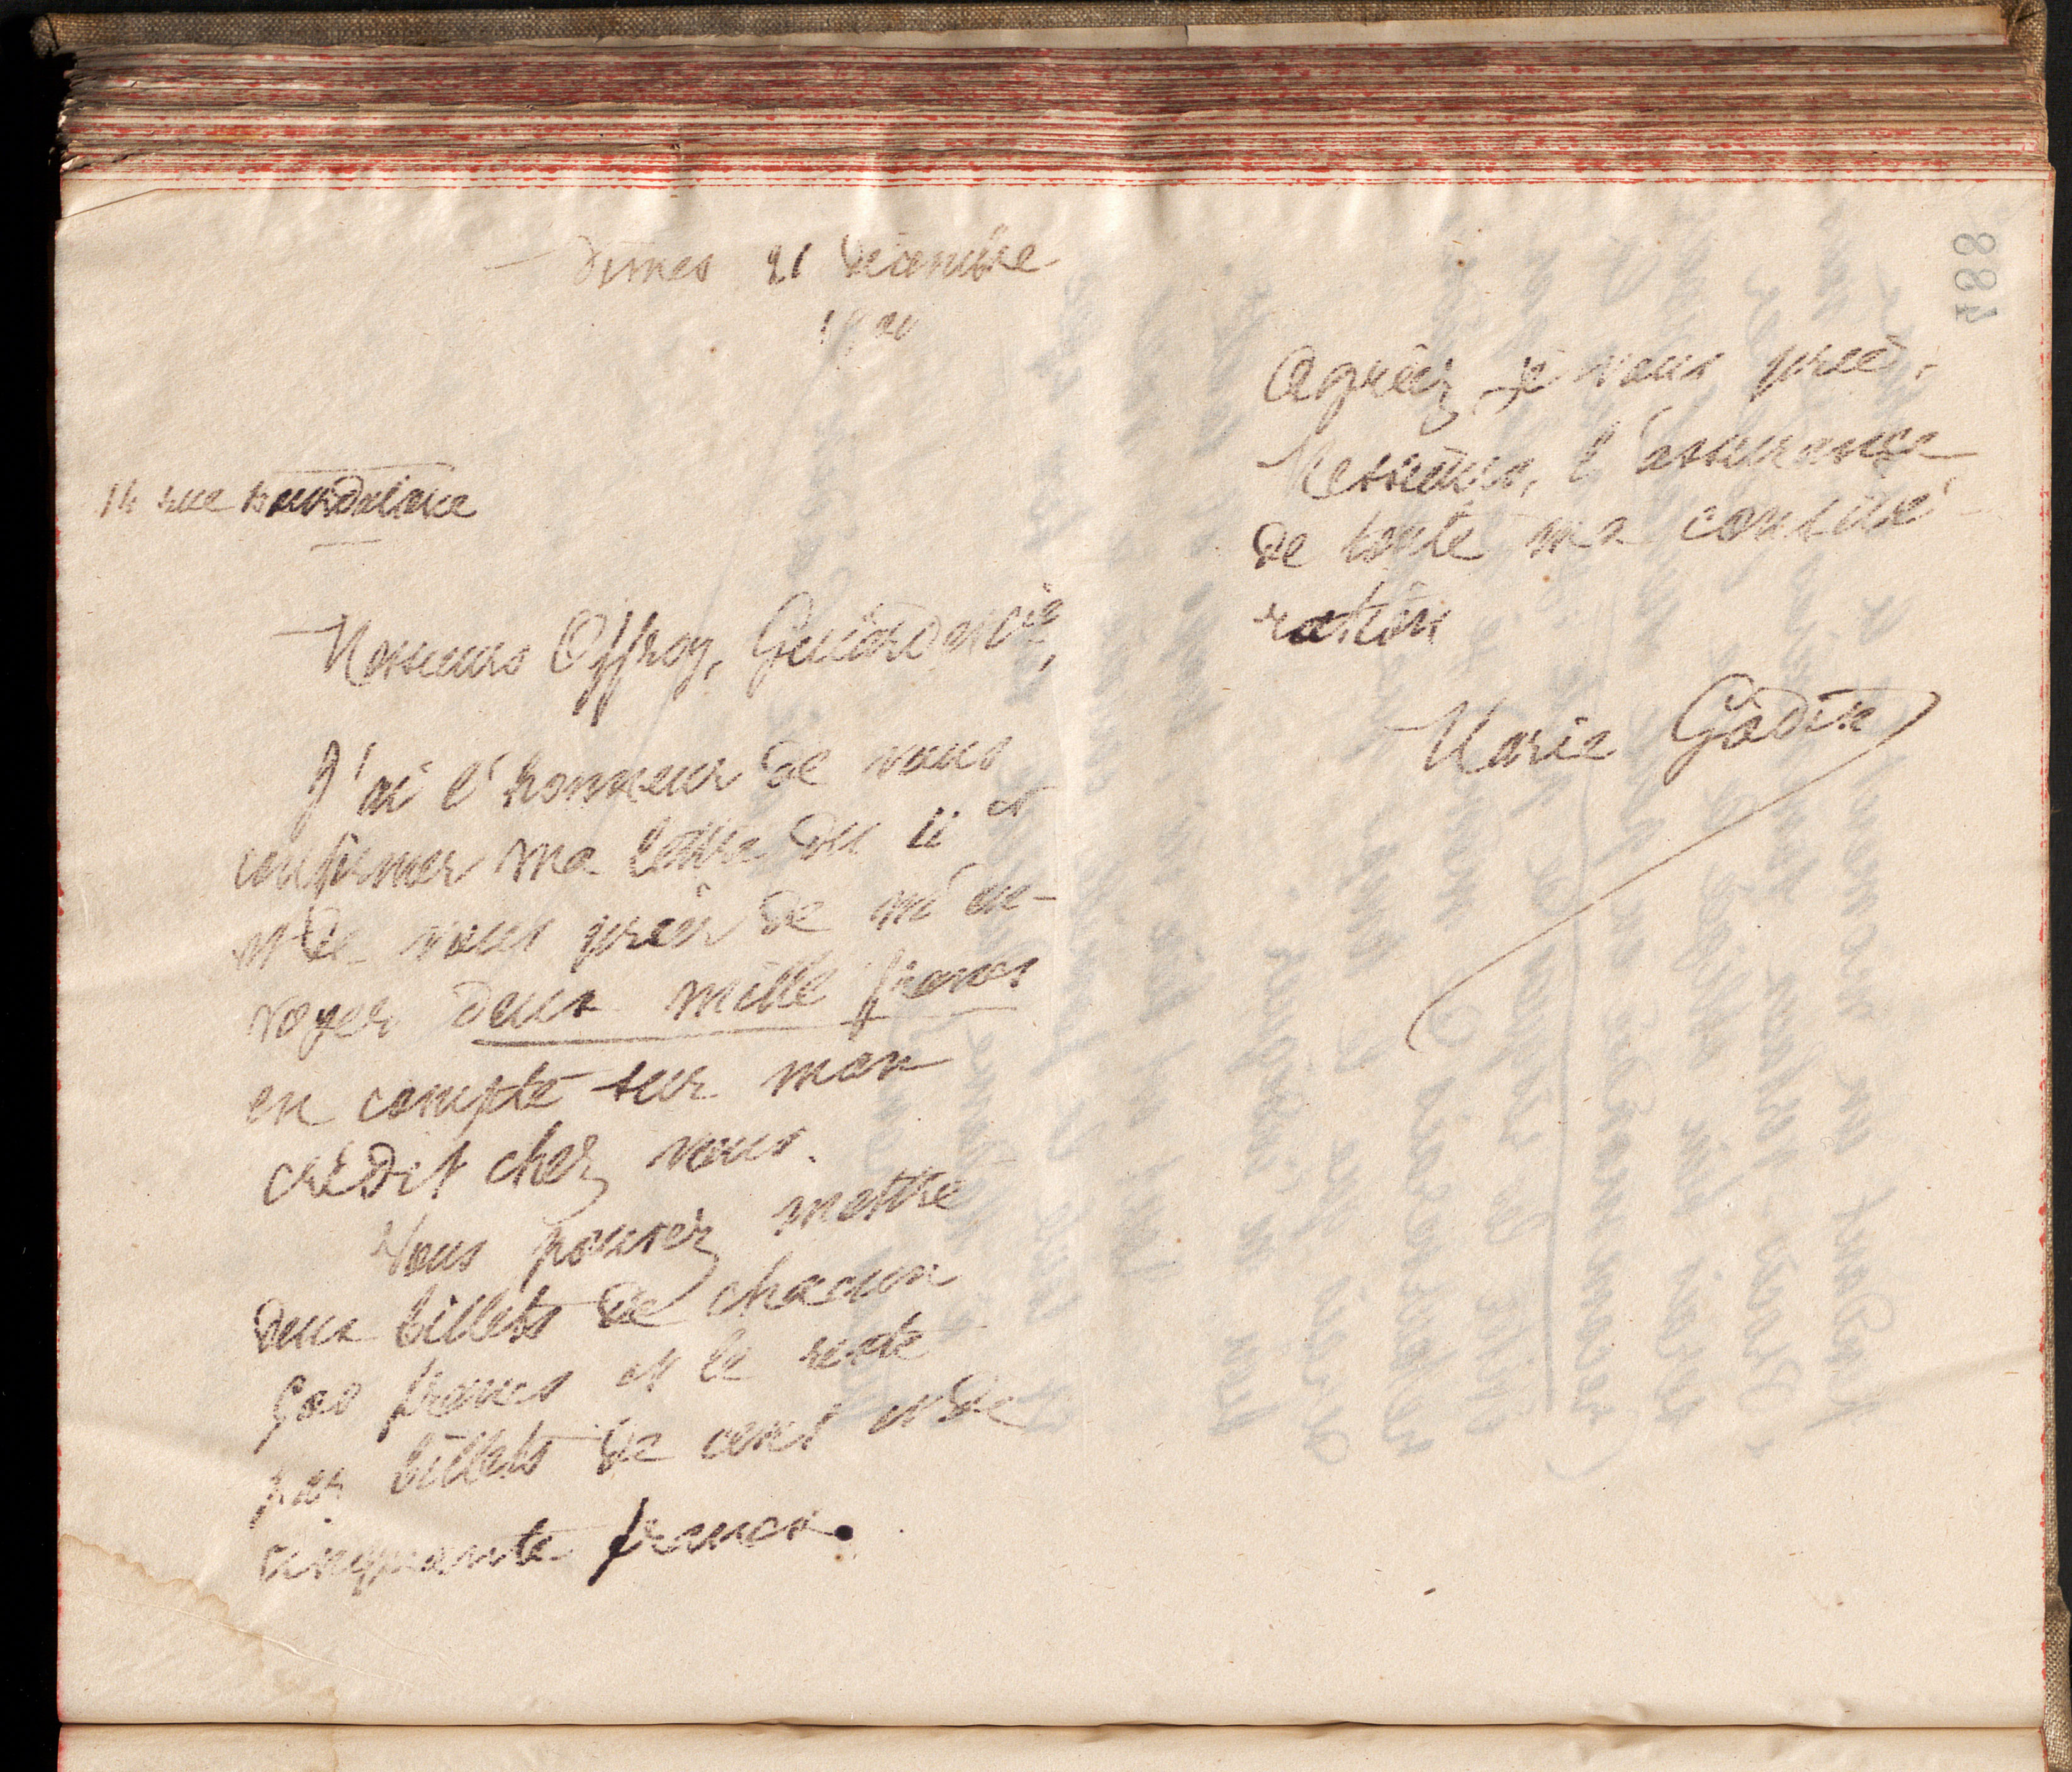 Nimes 21 décembre
1890
14 rue Bourdaloue
Messieurs Offroy, Guiard and Cie,
J'ai l'honneur de vous
confirmer ma lettre du 11 et
et de vous prier de m'en-
voyer deux mille francs
en compte sur mon
crédit chez vous.
Vous pouvez mettre
deux billets de chacun
500 francs et le reste
par billets de cent et de
cinquante francs.
Agréez je vous prie,
Messieurs, l'assurance
de toute ma considé
ration
Marie Godin
488